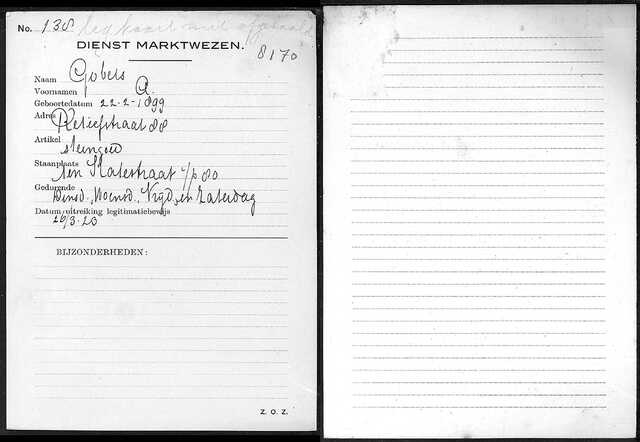 No. 138 legkaart niet afgehaald
DIENST MARKTWEZEN.
8170
Naam Gobels
Voornamen A.
Geboortedatum 22-2-1899
Adres Retiefstraat 88
Artikel steengoed
Staanplaats Ten Katestraat t/o 80
Gedurende Dinsd., Woensd., Vrijd. en Zaterdag
Datum uitreiking legitimatiebewijs
29/3-23
BIJZONDERHEDEN:
Z. O. Z.